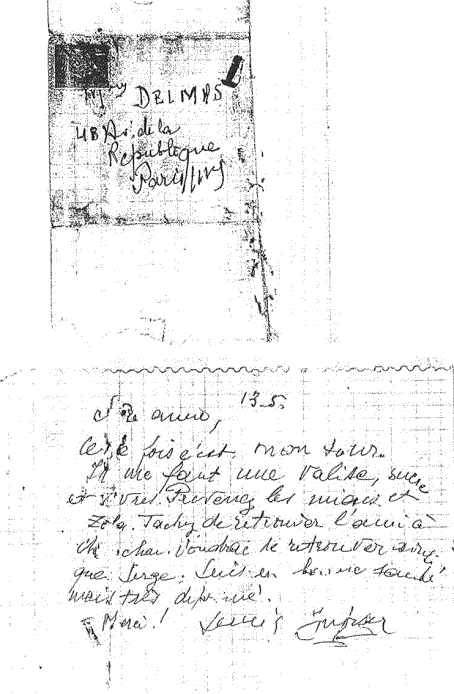 DELMAS
48 Av. de la
République
Paris
13-5.
amie,
fois c'est mon tour.
Il me faut une valise, sucre
et vivres Prévenez les miens et
Zola. Tachez de retrouver l'ami à
Voudrais le retrouver ainsi
que Serge. Suis en bonne santé
mais très déprimé.
Merci!